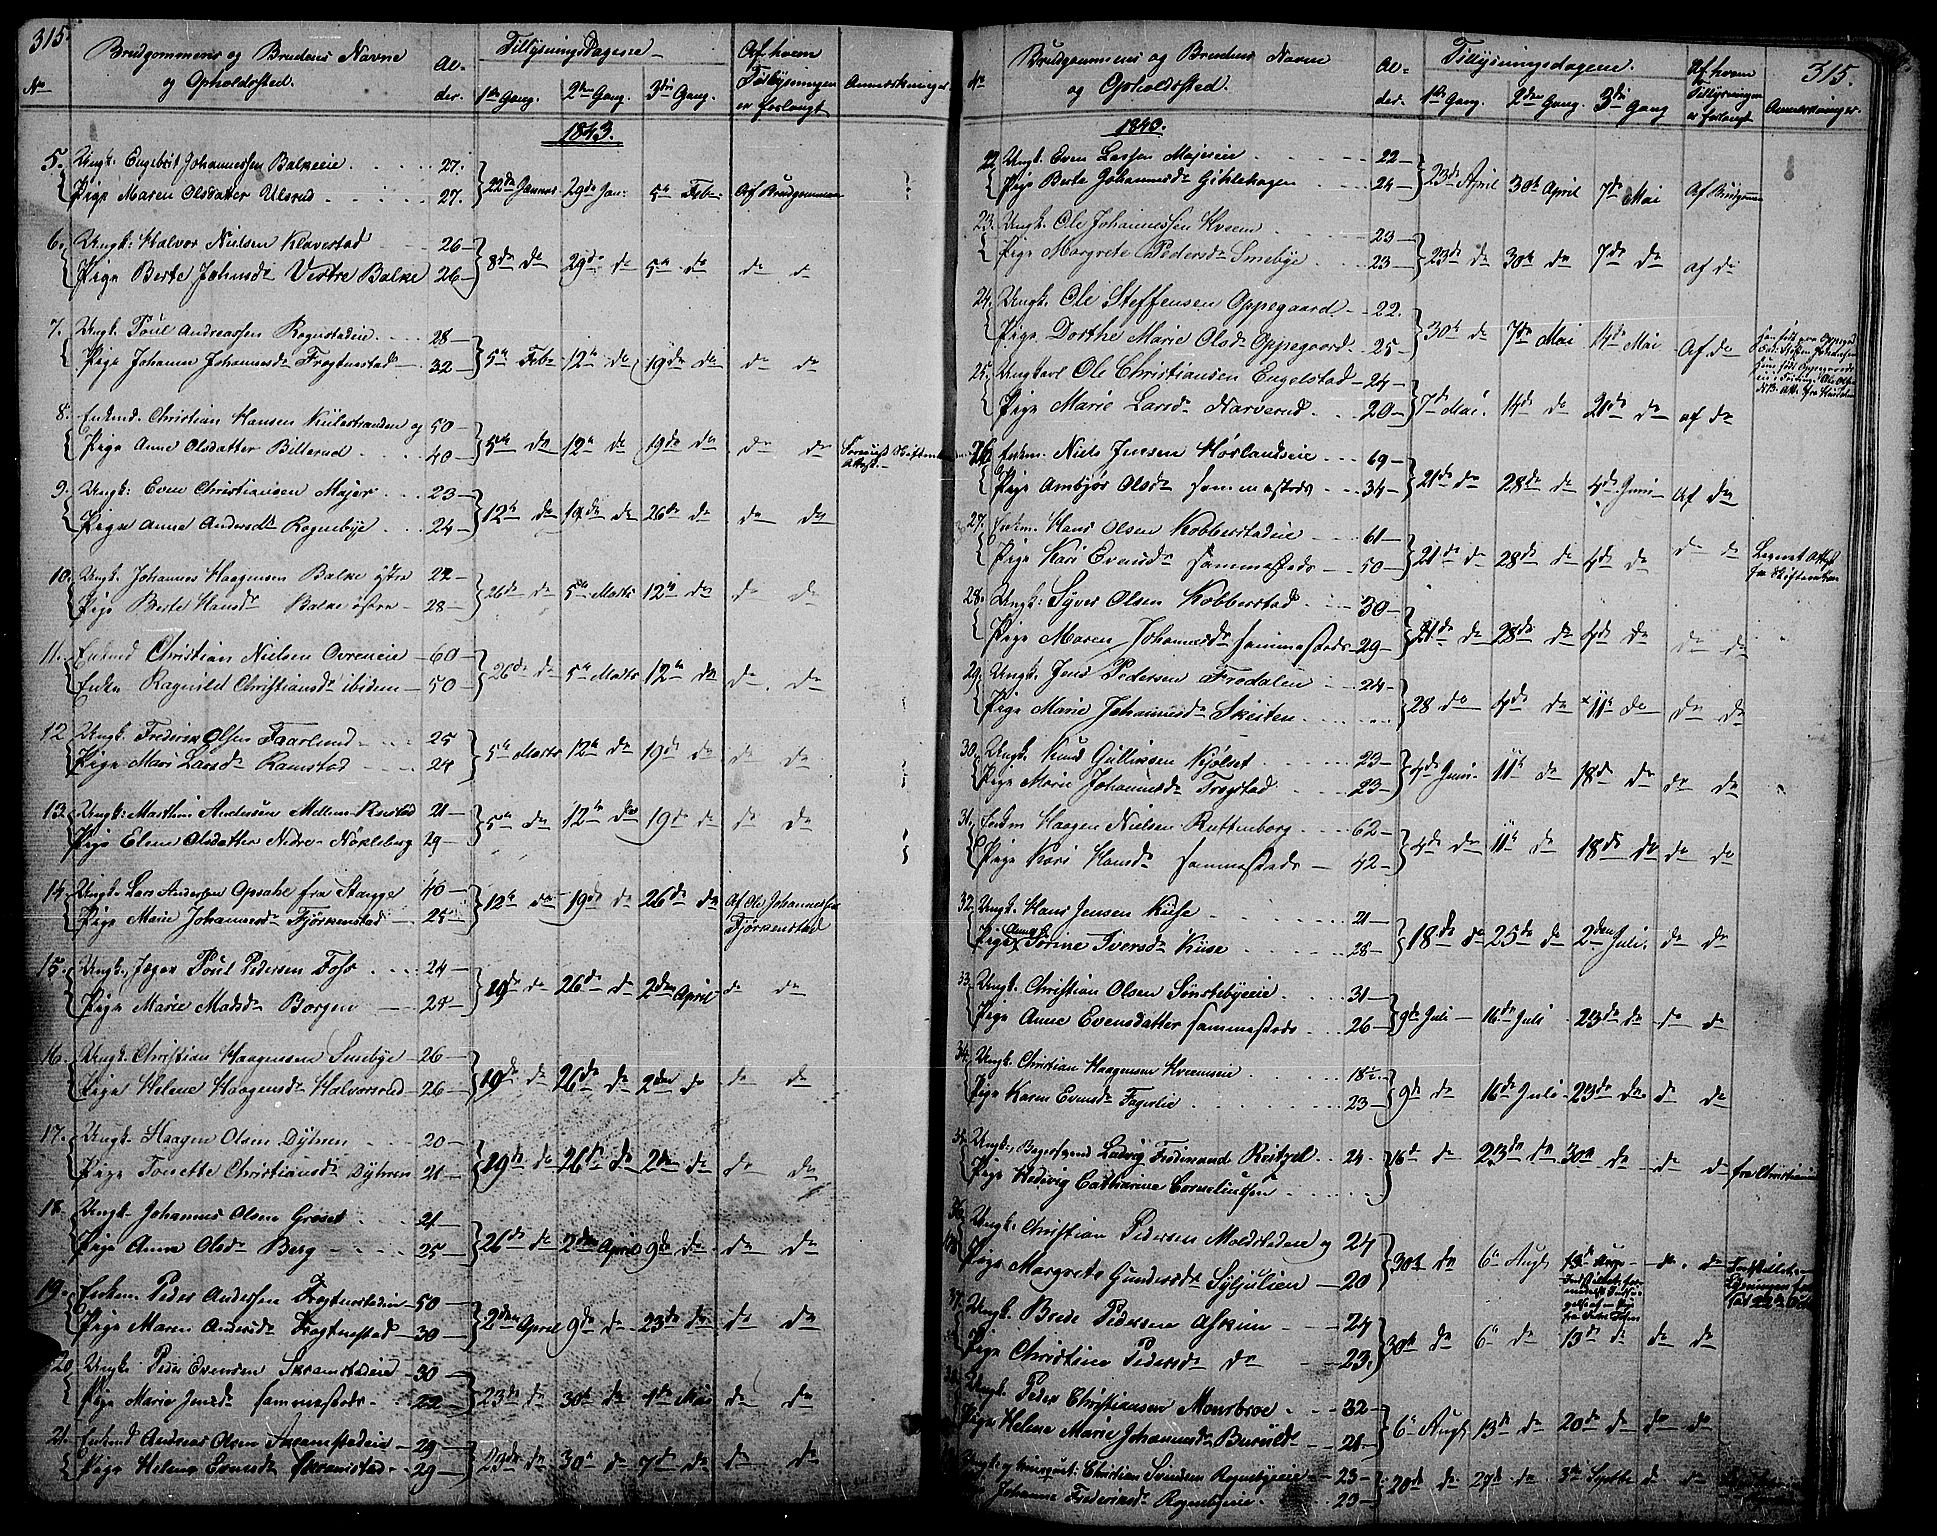 315.
No
Brudgommens og Brudens Navne
og Opholdssted.
Al-
der.
Tillysningsdagene
1ste Gang. 2den Gang. 3die Gang.
Af hvem
Tillysningen
er forlangt
Anmærkninger
1843.
5. Ungk. Engebrit Johannessen Balkeeie 27.
Pige Maren Olsdatter Ulsrud 27.
22de Januar 29de Jan. 5te Febr. Af Brudgommen
6. Ungk: Halvor Nielsen Klavestad 26
Pige Berte Johnsdr Vestre Balke 26
8de do 29de do 5te do do do
7. Ungk. Poul Andreassen Rognstadeie 28
Pige Johanne Johannesdr Frogtnestad 32
5te Febr 12te do 19de do do do
8. Enkmd. Christian Hansen Kiilerstranden og 50
Pige Anne Olsdatter Billerud 40
5te do 12te do 19de do do do
9. Ungk: Even Christiansen Majer 23
Pige Anne Andersdr Rognebye 24
12te do 19de do 26de do do do
10. Ungk. Johannes Haagensen Balke østre 22
Pige Berte Hansdr Balke østre 28
26de do 5te Marts 12te do do do
11. Enkmd Christian Nielsen Ovreneie 60
Enke Ragnild Christiansdr ibidem 50
26de do 5te Marts 12te do do do
12 Ungk. Frederik Olsen Faarlund 25
Pige Mari Larsdr Ramstad 24
5te Marts 12te do 19de do do do
13. Ungk: Mathias Andersen Mellem-Rustad 21
Pige Elene Olsdatter Nedre-Nøkleberg 29
5te do 12te do 19de do do do
14. Ungk. Lars Andersen Opsahl fra Stange 40
Pige Marie Johannesdr Fjørkenstad 25
12te do 19de do 26de do Af Ole Johannessen
Fjørkenstad
15. Ungk., Jæger Poul Pedersen Foss 24
Pige Marie Madsdr Borgen 24
19de do 26de do 2den April do do
16. Ungk. Christian Haagensen Smebye 26
Pige Helene Haagensdr Halvorsrud 26
19de do 26de do 2den do do do
17. Ungk. Haagen Olsen Dyhren 20
Pige Tonette Christiansdr Dyhren 21
19de do 26de do 2den do do do
18. Ungk. Johannes Olsen Grøset 21
Pige Anne Olsdr Berg 25
26de do 2den April 9de do do do
19. Enkem. Peder Andersen Frogtnestadeie 50
Pige Maren Andersdr Frogtnestad 30
2den April 9de do 23de do do do
20 Ungk. Peder Evensen Skramstadeie 30
Pige Marie Jensdr sammesteds 22
23de do 30te do 7de Mai do do
21. Enkmd Andreas Olsen Skramstadeie 29
Pige Helene Evensdr Skramstad 29
23de do 30te do 7de do do do
315.
No
Brudgommens og Brudens Navne
og Opholdssted.
Al-
der.
Tillysningsdagene.
1ste Gang. 2den Gang. 3die Gang
Af hvem
Tillysningen
er forlangt
Anmærkninger.
1843.
22 Ungk. Even Larsen Majereie 22
Pige Berte Johannesdr Gihlehagen 24
23de April 30te April 7de Mai Af Brudgommen
23. Ungk. Ole Johannessen Kvem 23
Pige Margrete Pedersdr Smebye 23
23de do 30te do 7de do af do
24. Ungk. Ole Steffensen Oppegaard 22.
Pige Dorthe Marie Olsdr Oppegaard 25
30te do 7de Mai 14de Mai Af do
25. Ungkarl Ole Christiansen Engelstad 24
Pige Marie Larsdr Narverud 20
7de Mai 14de do 21de do af do
26 Enkm. Niels Jensen Hørlandseie 69
Pige Ambjør Olsdr sammesteds 34
21de do 28de do 4de Juni Af do
27. Enkm. Hans Olsen Kobberstadeie 61
Pige Kari Evensdr sammesteds 50
21de do 28de do 4de do do do Leveret Attest
fra Skifteretten
28. Ungk: Syver Olsen Kobberstad 30
Pige Maren Johannesdr sammesteds 29
21de do 28de do 4de do do do
29. Ungk. Jens Pedersen Frodalen 24
Pige Marie Johannesdr Skjsten
28 do 4de do 11te do do do
30. Ungk. Knud Gullissen Kjølset 23
Pige Marie Johannesdr Frogstad 23
4de Juni 11te do 18de do do do
31. Enkm Haagen Nielsen Ruttenborg 62
Pige Kari Hansdr sammesteds 42
4de do 11te do 18de do do do
32. Ungk. Hans Jensen Kiise 21
Pige Tørine Iversdr Kiise 28
18de do 25de do 2den Juli do do
33. Ungk. Christian Olsen Sønstebyeeie 31
Pige Anne Evensdatter sammesteds 26
9de Juli 16de Juli 23de do do do
34. Ungk. Christian Haagensen Kvemseie 18½
Pige Karen Evensdr Fagerlie 23
9de do 16de Juli 23de do do do
35. Ungk., Bagersvend Ludvig Ferdinand Reitzel 24
Pige Hedevig Catharine Corneliussen
16de do 23de do 30te do do do fra Christiania
36. Ungk. Christian Pedersen Molstadeie og 24
Pige Margrete Gundersdr Syljulien 20
30te do 6te Augt
37. Ungk. Brede Pedersen Askim 24
Pige Christine Pedersdr do 23.
30te do 6te do 13de do do do
Ungk. Peder Christiansen Monsbroe 32
Pige Helene Marie Johannesdr 21
6te Augt 13de do 20de do do do
Christian Svendsen Rognebyeeie 23
Johanne Frederiksdr Rognebyeeie 29
20de do 27de do 3die Septbr do do